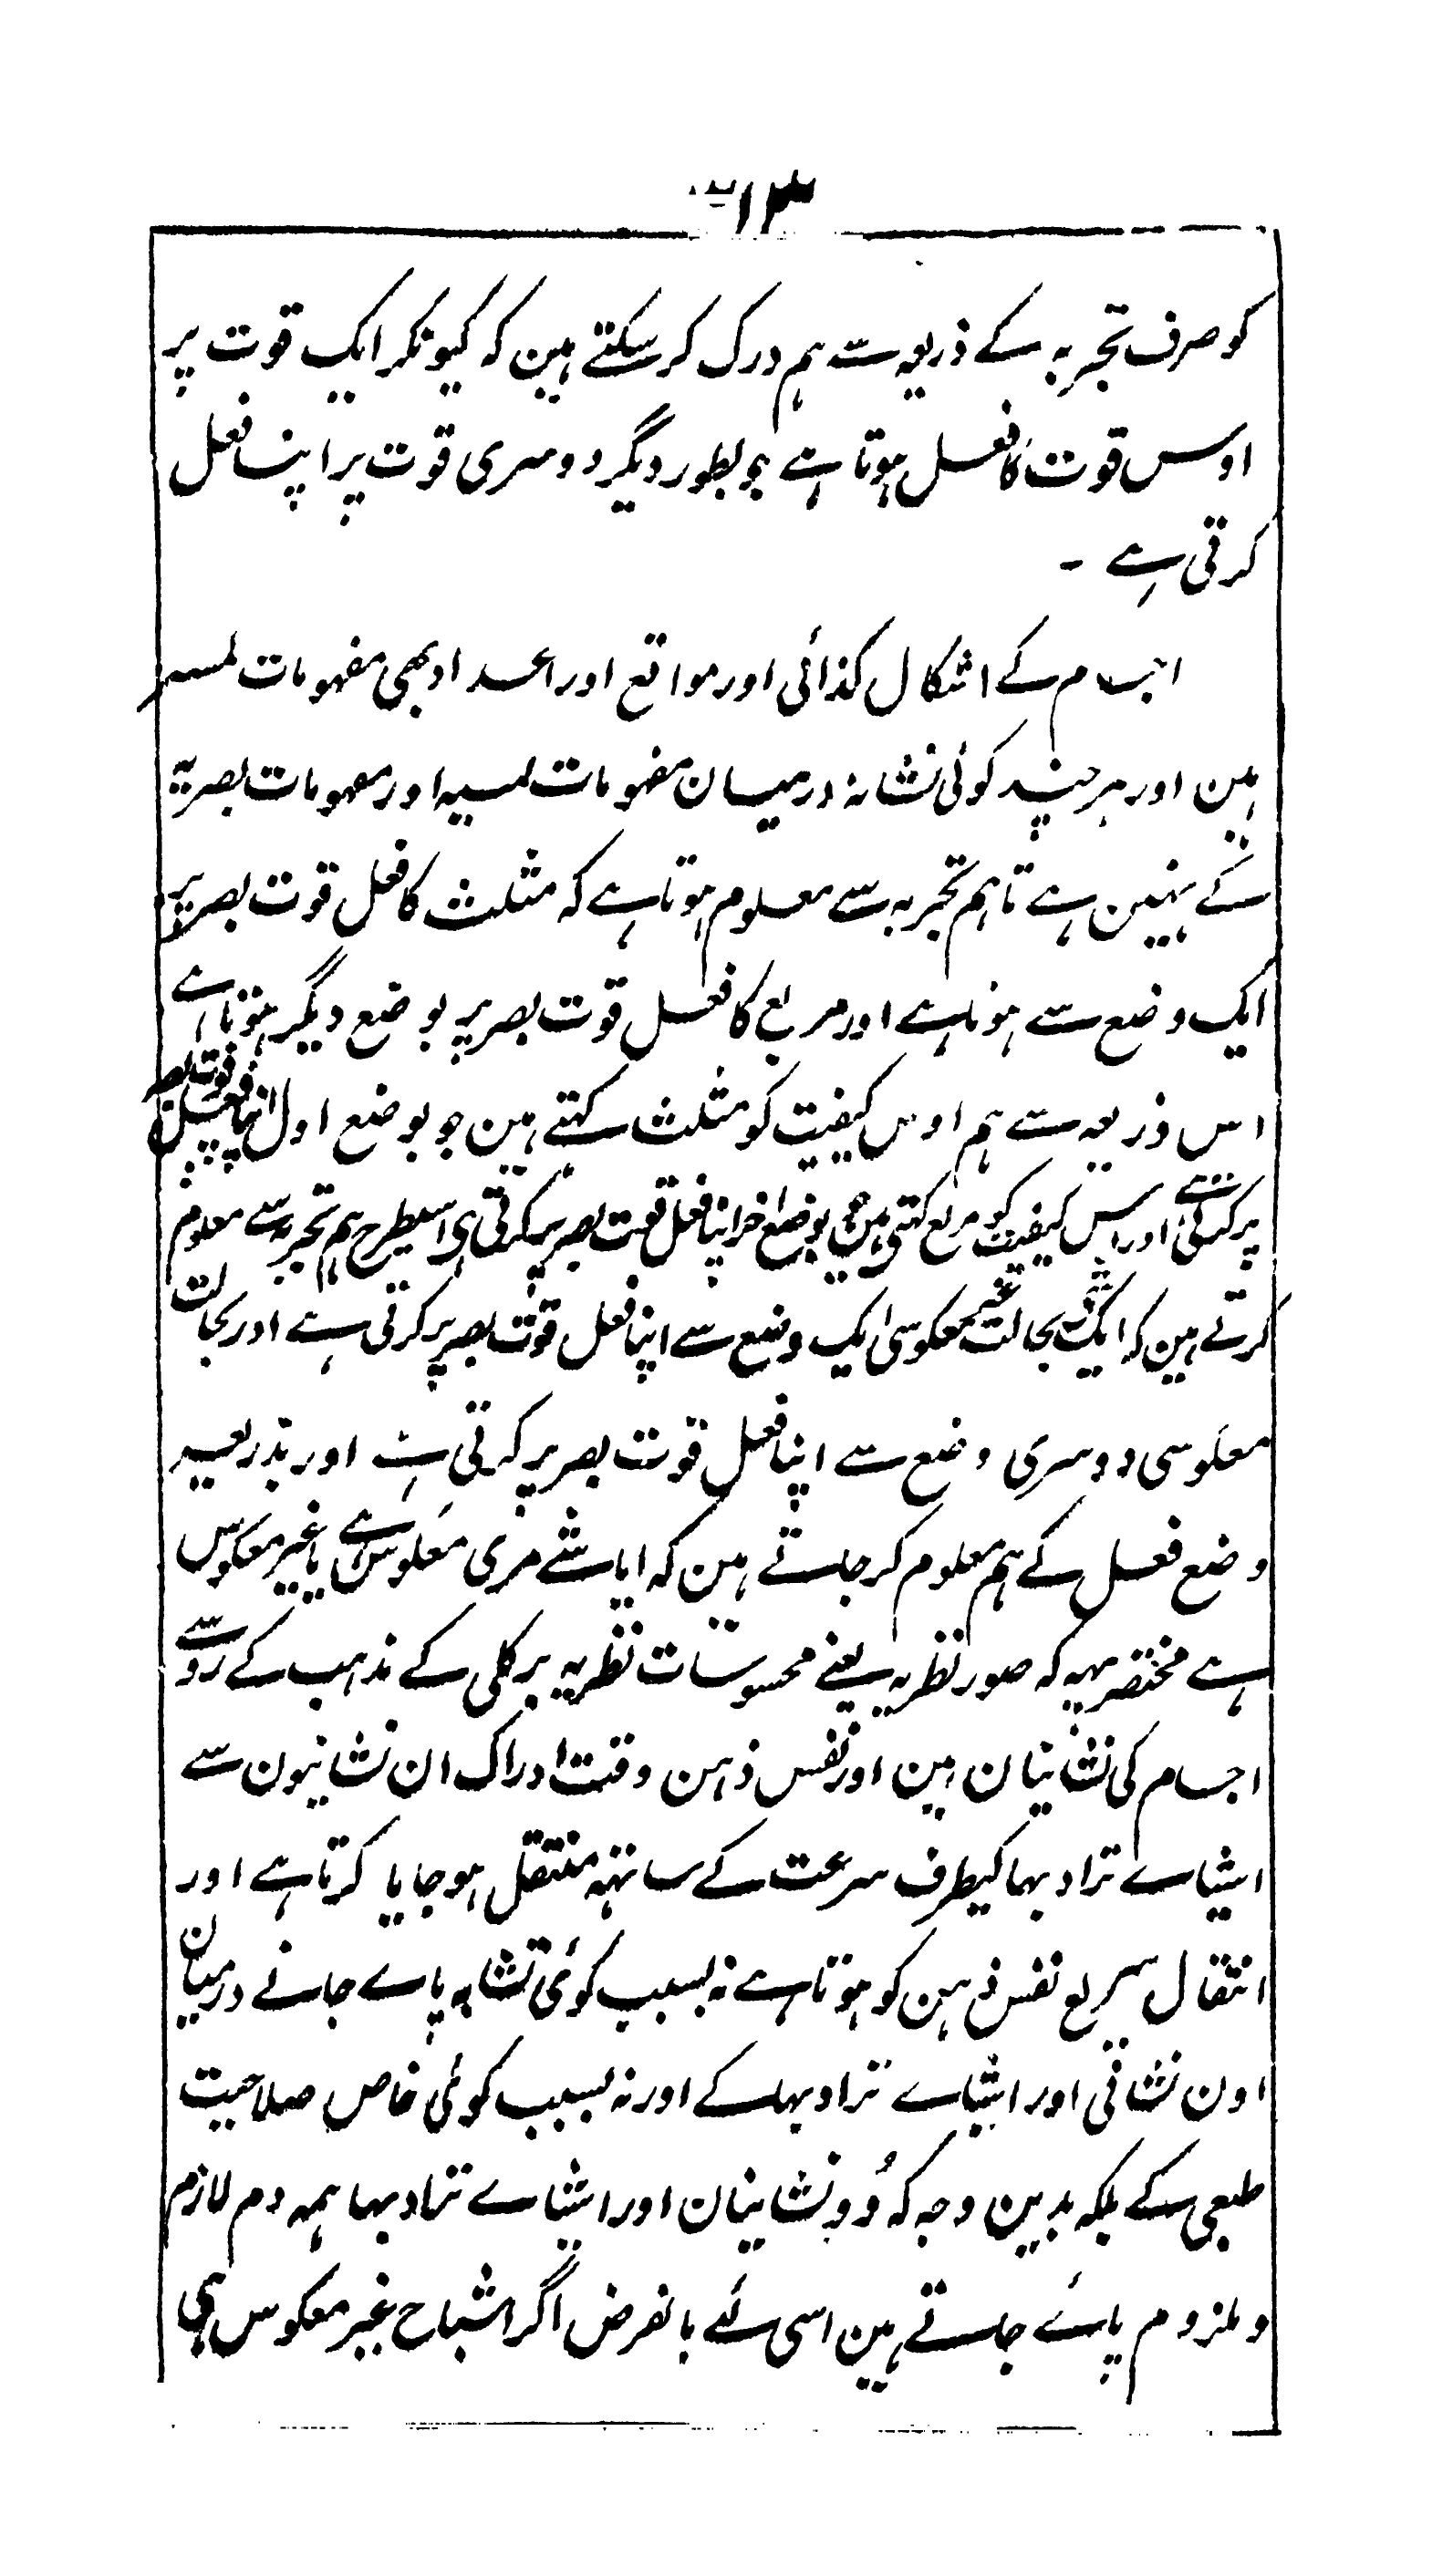 ۱۳
کو صرف تجربہ کے ذریعہ سے ہم درک کر سکتے ہین کہ کیونکر ایک قوت پر
اوس قوت کا فعل ہوتا ہے جو بطور دیگر دوسری قوت پر اپنا فعل
کرتی ہے ۔
اجسام کے اشکال کذائی اور مواقع اور اعداد بھی مفہومات لمسیہ
ہین اور ہر چند کوئی نشانہ درمیان مفہومات لمسیہ اور مفہومات بصریہ
کے نہین ہے تاہم تجربہ سے معلوم ہوتا ہے کہ مثلث کا فعل قوت بصر پر
ایک وضع سے ہوتا ہے اور مربع کا فعل قوت بصر پر بوضع دیگر ہوتا ہے
اس ذریعہ سے ہم اوس کیفیت کو مثلث کہتے ہین جو بوضع اول اپنا فعل قوت بصر
پر کرتی ہے اور اس کیفیت کو مربع کہتی ہین جو بوضع آخر اپنا فعل قوت بصر پر کرتی ہی اسیطرح ہم تجربہ سے معلوم
کرتے ہین کہ ایک شی بحالت غیر معکوسی ایک وضع سے اپنا فعل قوت بصر پر کرتی ہے اور بحالت
معکوسی دوسری وضع سے اپنا فعل قوت بصر پر کرتی ہے اور بذریعہ
وضع فعل کے ہم معلوم کر جاتے ہین کہ ایا شے مرئی معکوس ہے یا غیر معکوس
ہے مختصر یہہ کہ صور نظریہ یعنے محسوسات نظریہ برکلی کے مذہب کے رو سے
اجسام کی نشانیان ہین اور نفس ذہن وقت ادراک ان نشانیون سے
اشیاے تراد بہا کیطرف سرعت کے ساتہہ منتقل ہو جایا کرتا ہے اور
انتقال سریع نفس ذہن کو ہوتا ہے نہ بسبب کوئی تشابہ پاے جانے درمیان
اون نشانی اور اشیاے تراد بہا کے اور نہ بسبب کوئی خاص صلاحیت
طبعی کے بلکہ بدین وجہ کہ وُو نشانیان اور اشیاے تراد بہا ہمہ دم لازم
و ملزوم پائے جاتے ہین اسی لئے بالفرض اگر اشباح غیر معکوس ہی